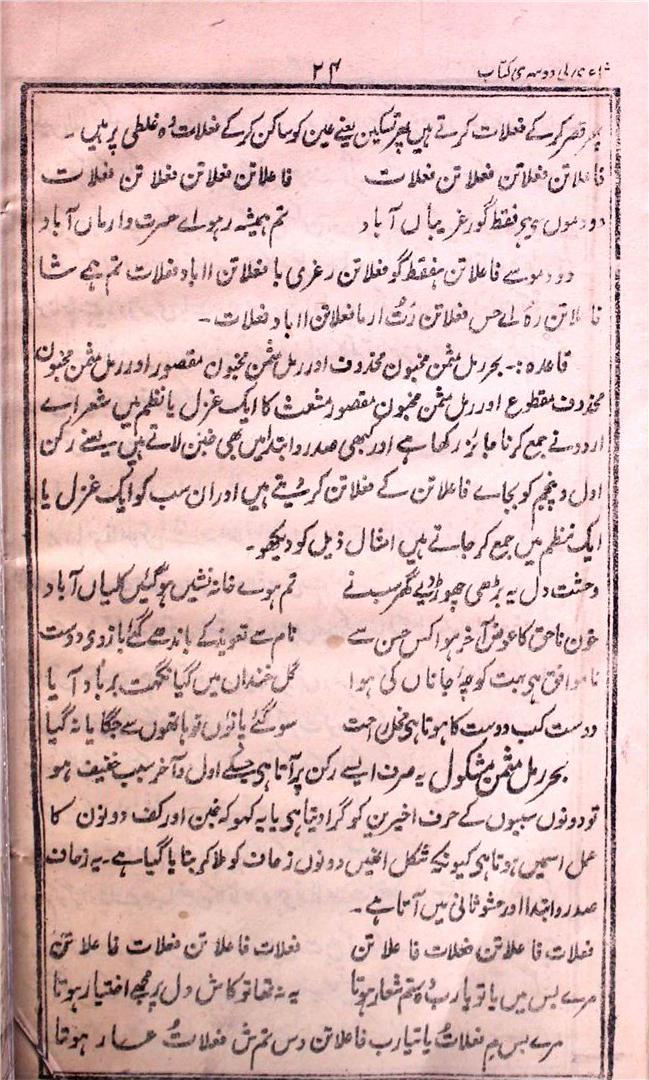 ۲۴ دوسری کتاب
پھر قصر کر کے فعلات کرتے ہیں پھر تسکین یعنے عین کو ساکن کر کے فعلات وہ غلطی پر ہیں۔
فاعلاتن فعلاتن فعلاتن فعلات فاعلاتن فعلاتن فعلاتن فعلات
فقط گور غریباں آباد تم ہمیشہ رہو اے حسرت وارماں آباد
فاعلاتن ہفقط گو فعلاتن رغری با فعلاتن ااباد فعلات تم ہمے شا
فاعلاتن رہ اے حس فعلاتن رَتُ ارما فعلاتن ااباد فعلات۔
قاعدہ :- بحر رمل مثمن مخبون محذوف اور رمل مثمن مخبون مقصور اور رمل مثمن مخبون
محذوف مقطوع اور رمل مثمن مخبون مقصور مشعث کا ایک غزل یا نظم میں شعراے
اردو نے جمع کرنا جائز رکھا ہے اور کبھی صدر وابتدا میں بھی خبن لاتے ہیں یعنے رکن
اول و پنجم کو بجاے فاعلاتن کے فعلاتن کر دیتے ہیں اور ان سب کو ایک غزل یا
ایک نظم میں جمع کر جاتے ہیں امثال ذیل کو دیکھو۔
وحشت دل یہ بڑھی چھوڑ دیے گھر سب نے تم ہوے خانہ نشیں ہو گئیں گلیاں آباد
خون ناحق کا عوض آخر ہوا کس حسن سے نام سے تعویذ کے باندھے گئے بازوی دوست
ناموافق ہی بہت کوچۂ جاناں کی ہوا گل خنداں میں گیا نکہت برباد آیا
دوست کب دوست کا ہوتا ہی مخل راحت سو گئے پانوں تو ہاتھوں سے جگایا نہ گیا
بحر رمل مثمن مشکول یہ صرف ایسے رکن پر آتا ہی جسکے اول و آخر سبب خفیف ہو
تو دونوں سببوں کے حرف اخیرین کو گرا دیتا ہی یا یہ کہو کہ خبن اور کف دونوں کا
عمل اسمیں ہوتا ہی کیونکہ شکل انھیں دونوں زحاف کو ملا کر بنایا گیا ہے۔ یہ زحاف
صدر وابتدا اور حشو ثانی میں آتا ہے۔
فعلات فاعلاتن فعلات فاعلاتن فعلات فاعلاتن فعلات فاعلاتن
مرے بس میں یا تو یارب وہ ستم شعار ہوتا یہ نہ تھا تو کاش دل پر مجھے اختیار ہوتا
مرے بس م فعلاتُ یا تیارب فاعلاتن وس تم ش فعلاتُ عار ہوتا